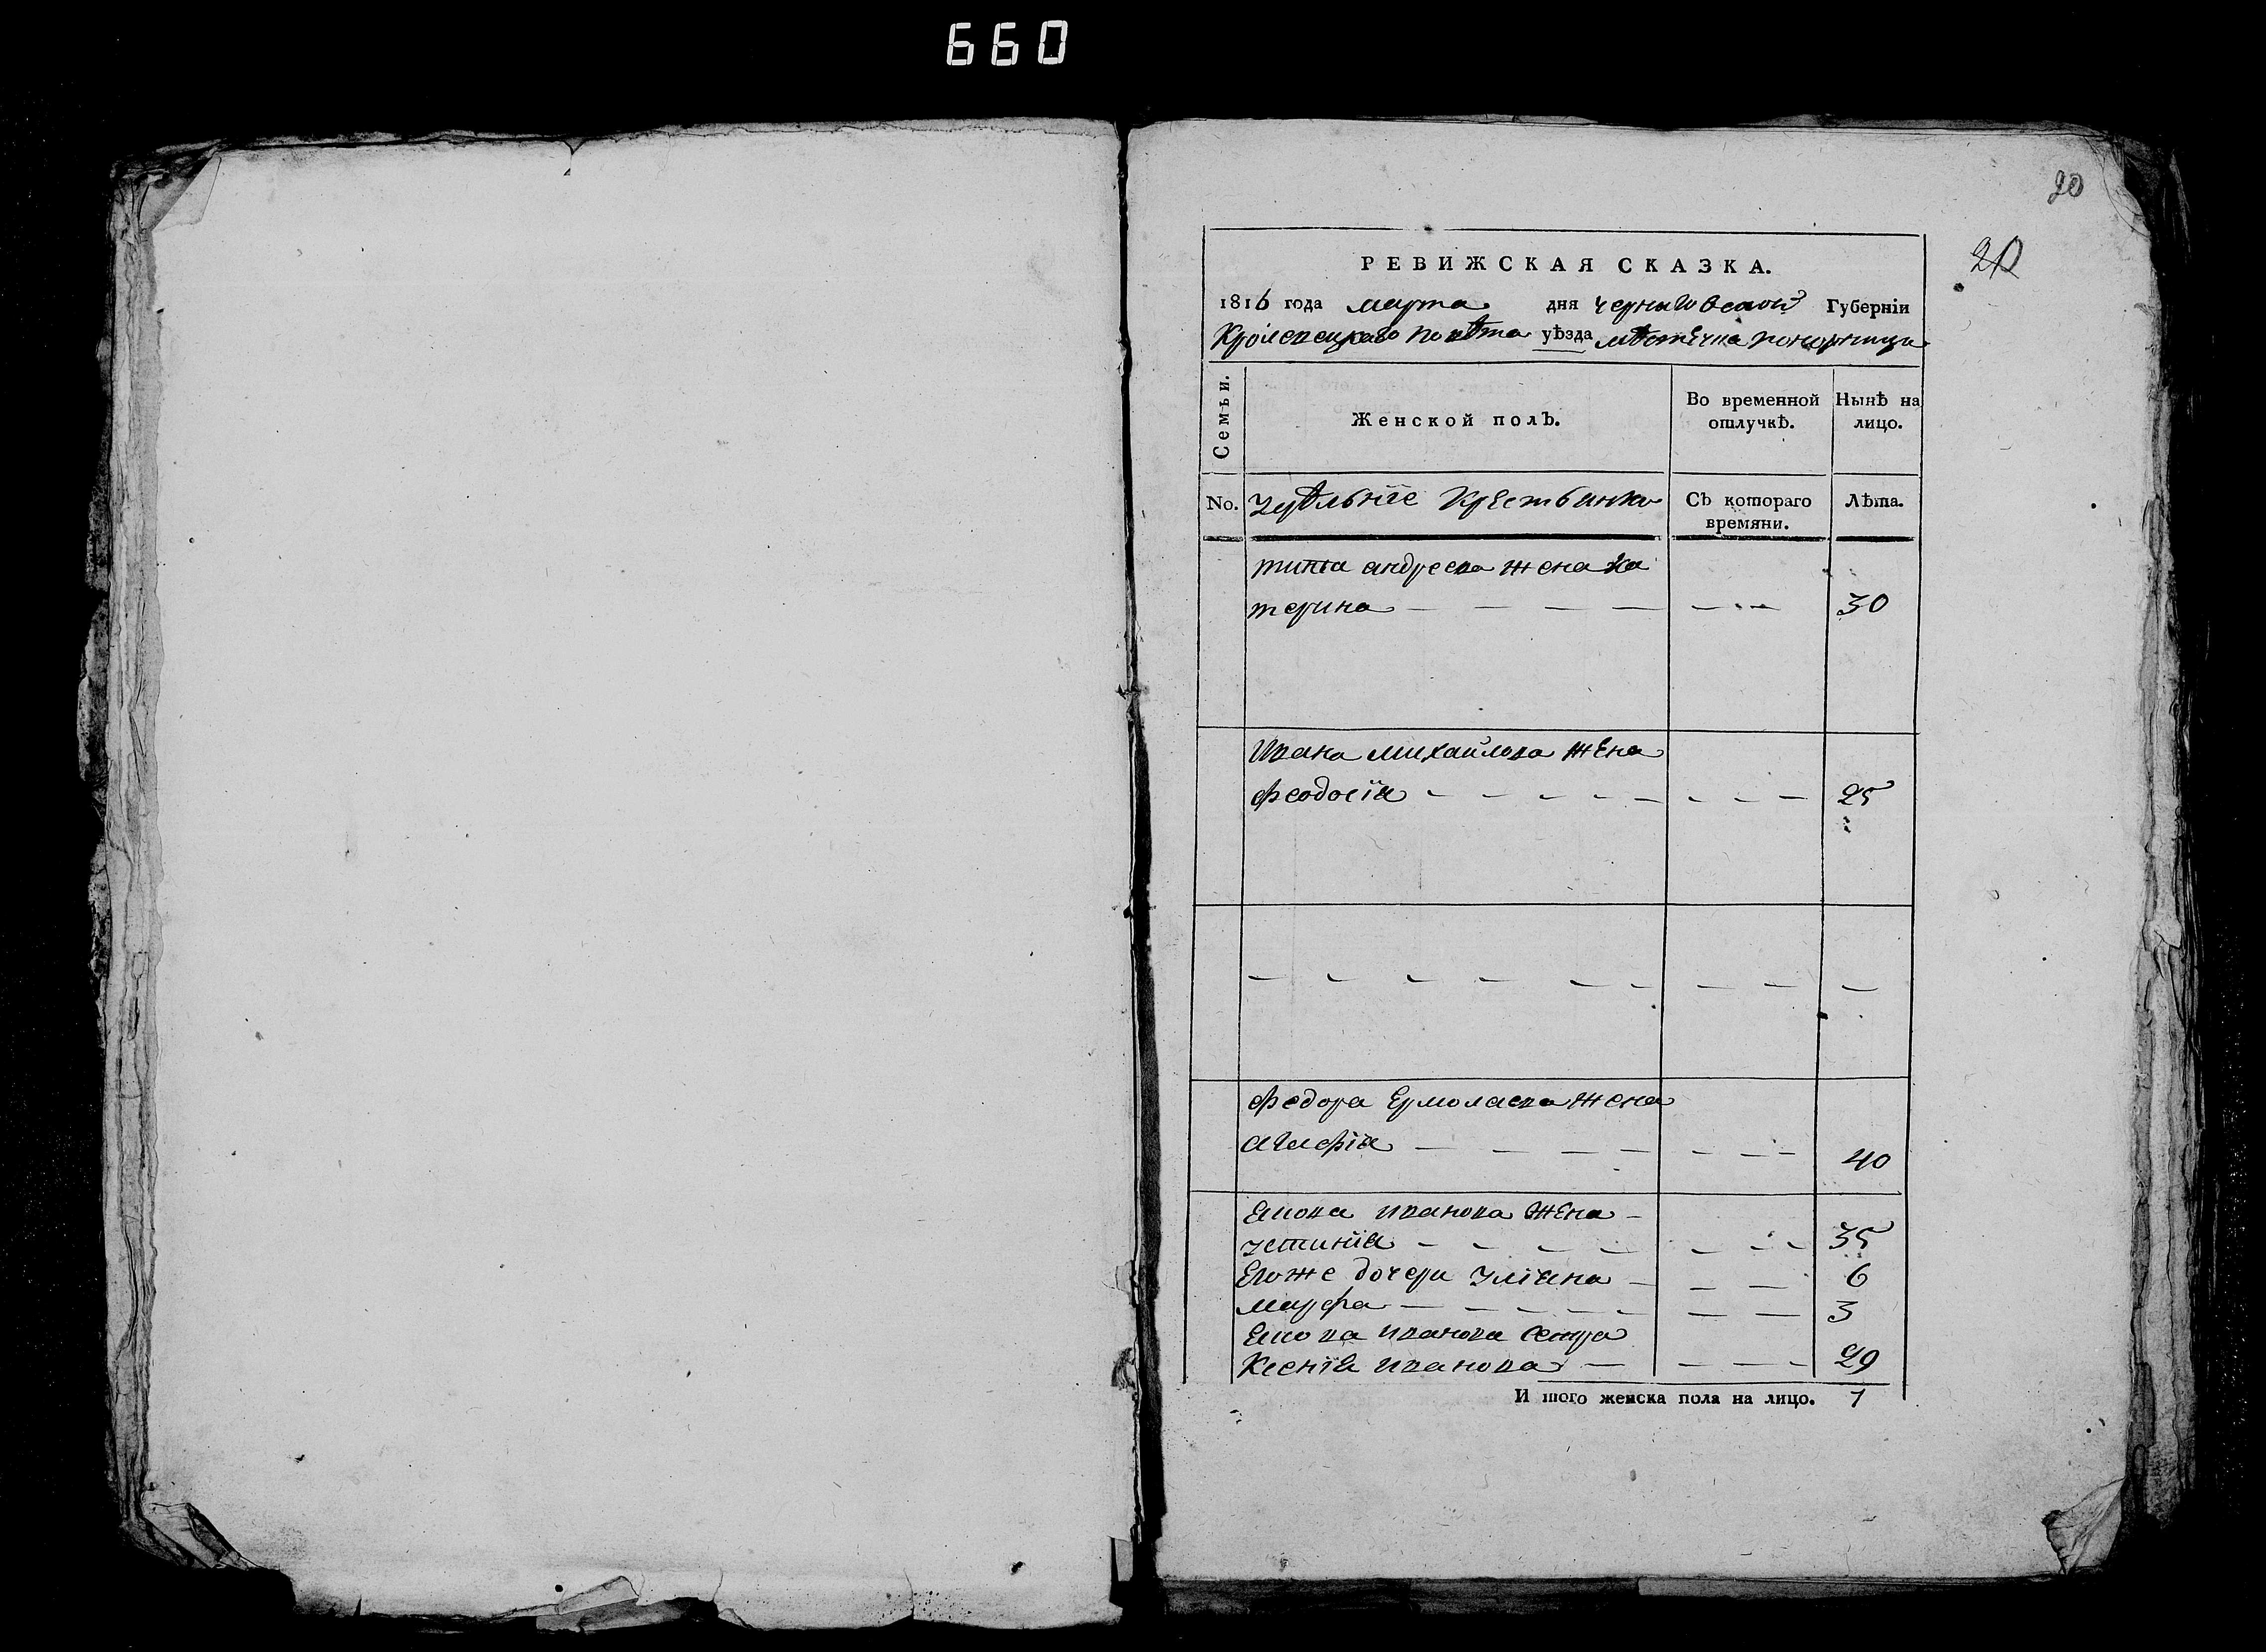 660
20
20
РЕВИЖСКАЯ СКАЗКА.
1816 года марта дня Черниговской Губернїи
Кролевецкаго повѣта уѣзда мѣстечка понорници
Семьи.
Женской полъ.
Во временной отлучкѣ.
Нынѣ на лицо.
No.
удѣльнїе крестьянки
Съ котораго времяни.
Лѣта.
андреева жена ка
терина 30
Ивана михайлова жена
феодосїя 25
федора Ермолаева жена
агафїя 40
иванова жена
устинїя 35
Егоже дочери улїяна 6
марфа 3
иванова сестра
Ксенїя иванова 29
И того женска пола на лицо. 7